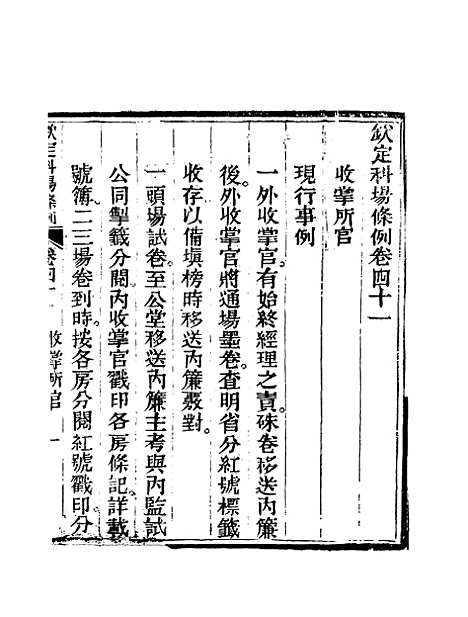 欽定科場條例卷四十一
收掌所官
現行事例
一外收掌官有始終經理之責硃卷移送內簾
後外收掌官將通場墨卷查明省分紅號標籤
收存以備填榜時移送內簾覈對
一頭場試卷至公堂移送內簾主考與內監試
公同掣籤分閱內收掌官戳印各房條記詳載
號簿二三場卷到時按各房分閱紅號戳印分
欽定科場條例 卷四十一 收掌所官 一